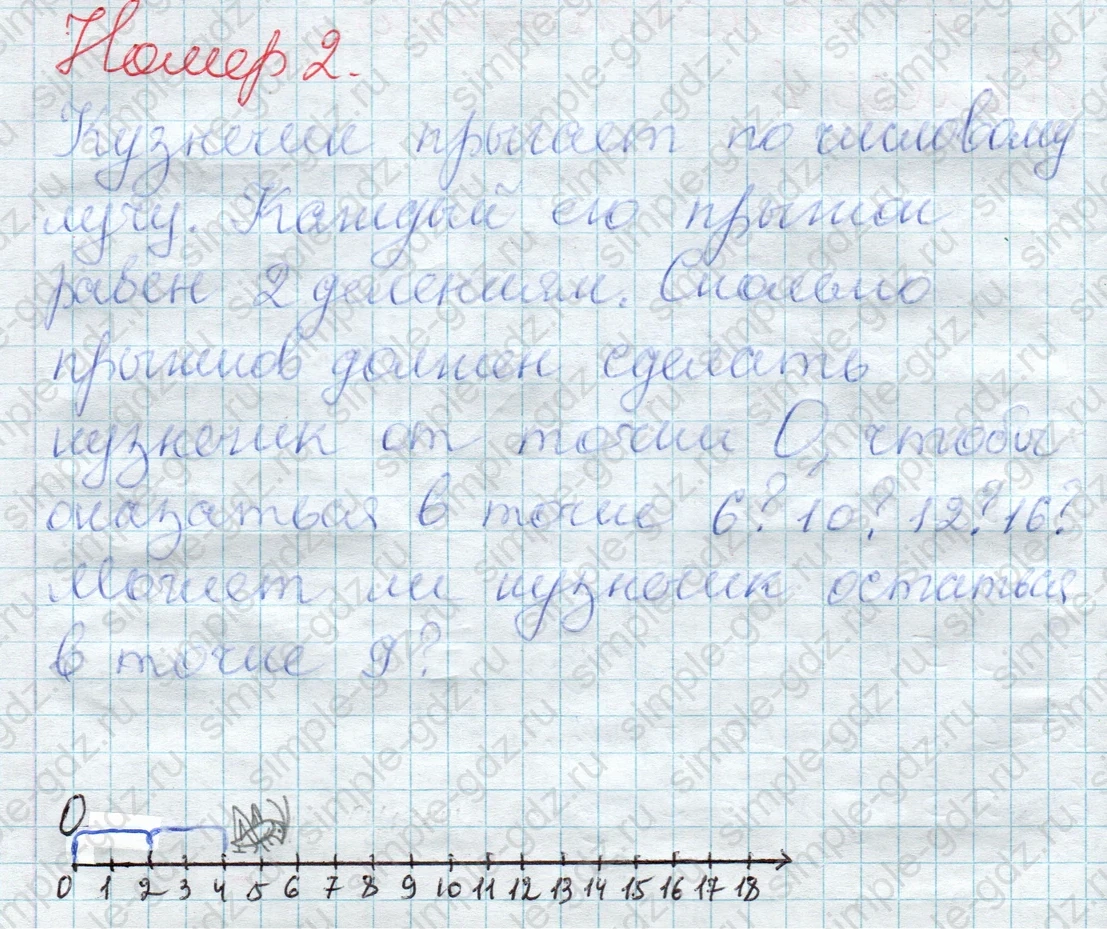 Номер 2.
Кузнечик прыгает по числовому
лучу. Каждый его прыжок
равен 2 делениям. Сколько
прыжков должен сделать
кузнечик от точки О, чтобы
оказаться в точке 6? 10? 12? 16?
Может ли кузнечик остаться
в точке 9?
О
0 1 2 3 4 5 6 7 8 9 10 11 12 13 14 15 16 17 18
simple-gdz.ru